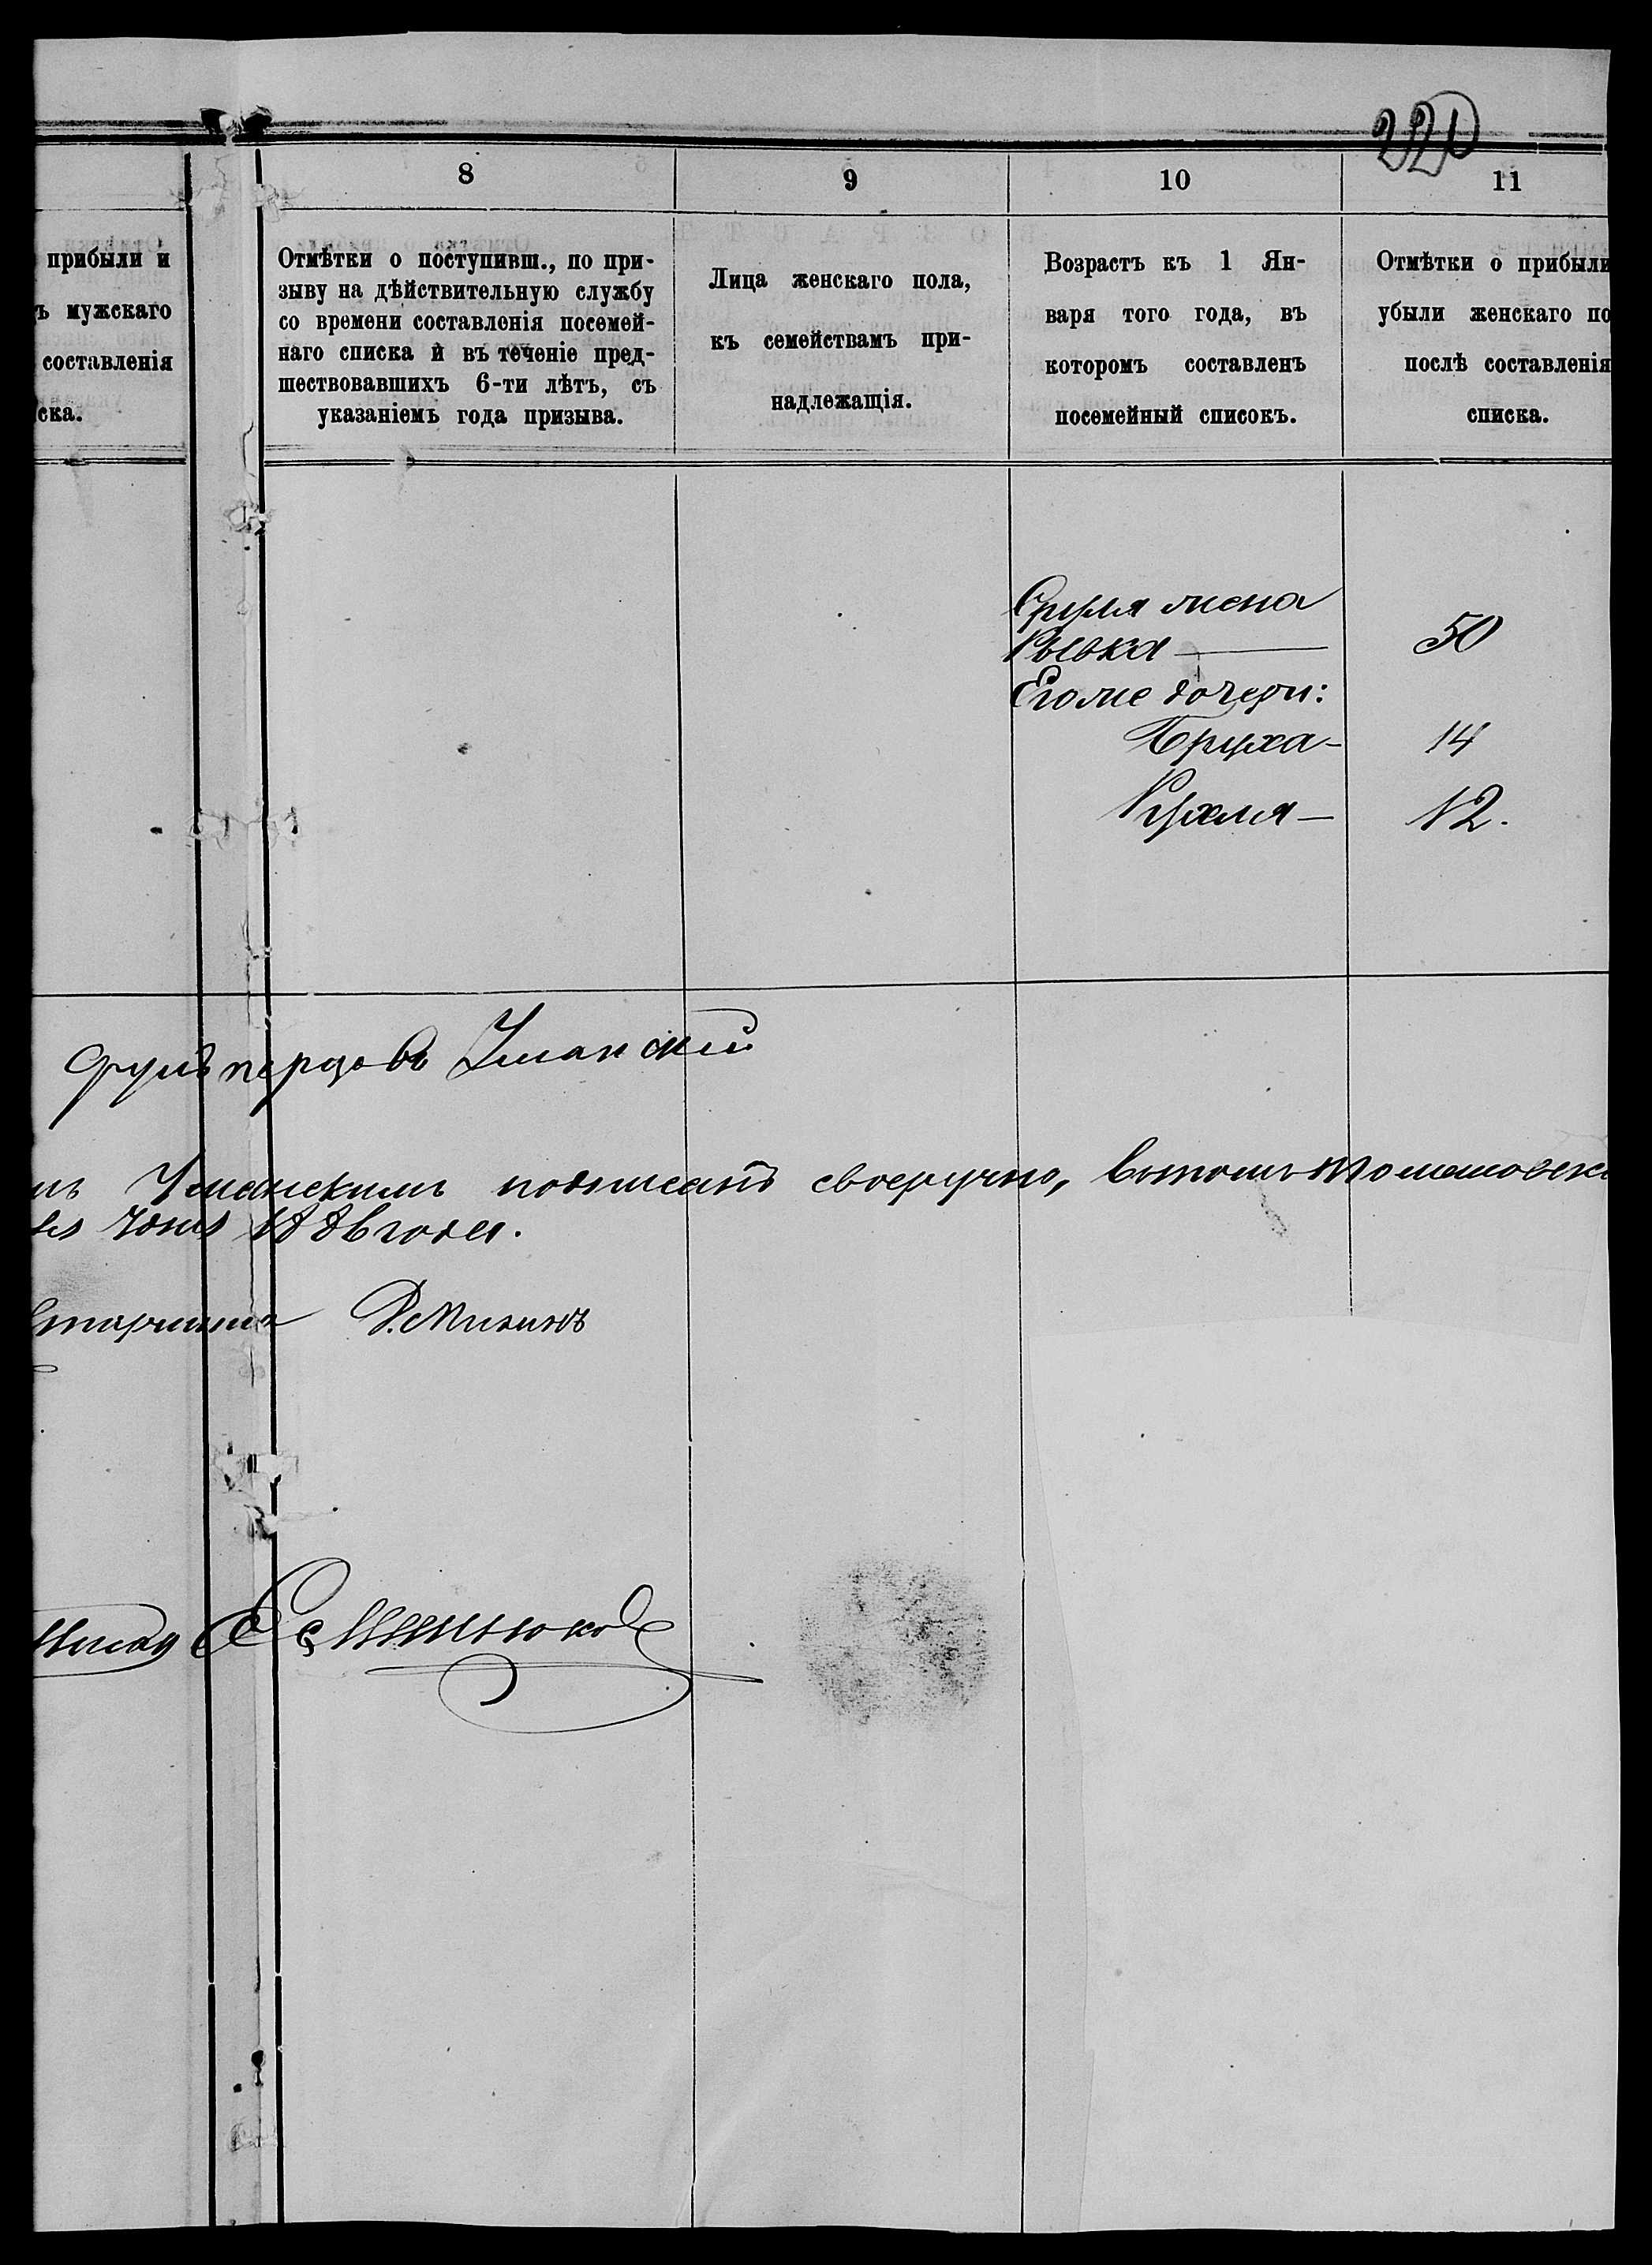 220
8
9
10
11
прибыли и
ъ мужскаго
составленія
ска.
Отмѣтки о поступивш., по при-
зыву на дѣйствительную службу
со времени составленія посемей-
наго списка и въ теченіе пред-
шествовавшихъ 6-ти лѣтъ, съ
указаніемъ года призыва.
Лица женскаго пола,
къ семействамъ при-
надлежащія.
Возрастъ къ 1 Ян-
варя того года, въ
которомъ составленъ
посемейный списокъ.
Отмѣтки о прибыли
убыли женскаго по
послѣ составленія
списка.
Сруля жена
Рывка — 50
Его же дочери:
Бруха — 14
Рухля — 12.
Сруль Уманскій
мъ Уманскимъ подписанъ своеручно, въ томъ
года.
старшина